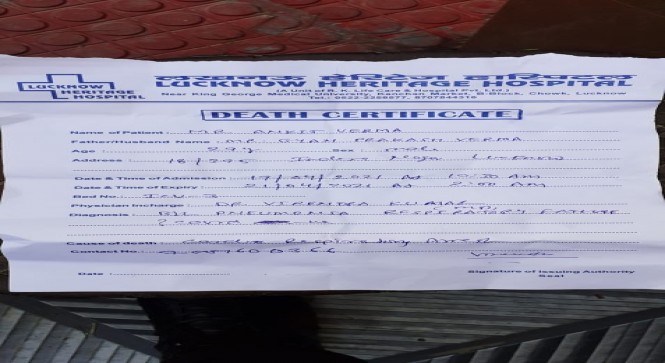 LUCKNOW
HERITAGE
HOSPITAL
लखनऊ हेरिटेज हास्पिटल
LUCKNOW HERITAGE HOSPITAL
(A Unit of R. K. Life Care & Hospital Pvt. Ltd.)
Near King George Medical University, Kanchan Market, B-Block, Chowk, Lucknow
DEATH CERTIFICATE
Name of Patient: MR. ANKIT VERMA
Father/Husband Name: MR. GYAN PRAKASH VERMA
Age Sex male
Address: 18/ Indira Nagar Lucknow
Date & Time of Admission: 17/04/2021 At 10:30 AM
Date & Time of Expiry: 21/04/2021 At AM
Bed No. ICU-3
Physician Incharge: DR VIRENDRA KUMAR
Diagnosis: B/L PNEUMONIA RESPIRATORY FAILURE
Cause of death: Cardio Respiratory Arrest
Contact No.
Date Signature of Issuing Authority
Seal